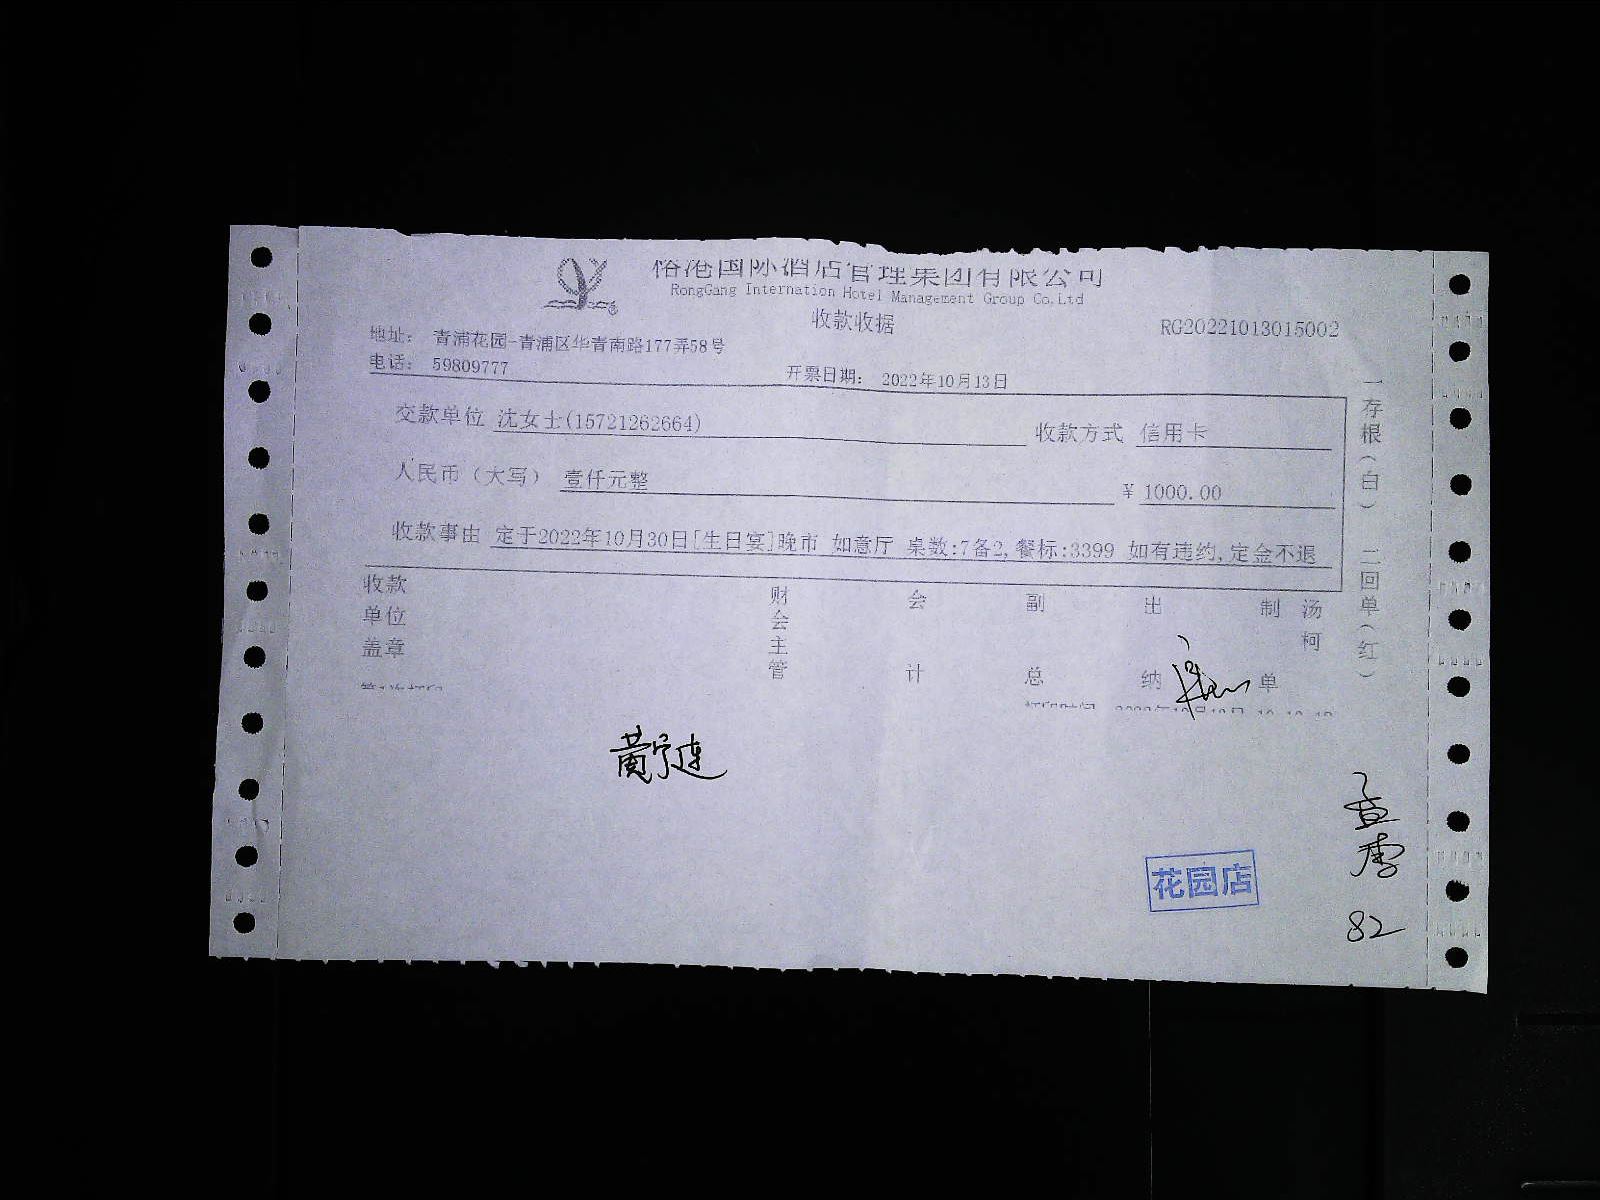 裕港国际酒店管理集团有限公司
RongGang Internation Hotel Management Group Co.Ltd
收款收据
RG20221013015002
地址: 青浦花园-青浦区华青南路177弄58号
电话: 59809777
开票日期: 2022年10月13日
交款单位 沈女士(15721262664) 收款方式 信用卡
人民币(大写) 壹仟元整 ¥ 1000.00
收款事由 定于2022年10月30日[生日宴]晚市 如意厅 桌数:7备2,餐标:3399 如有违约,定金不退
一存根(白) 二回单(红)
收款单位盖章
财会主管
会计
副总
出纳
制单
汤柯
黄宁连
花园店
82